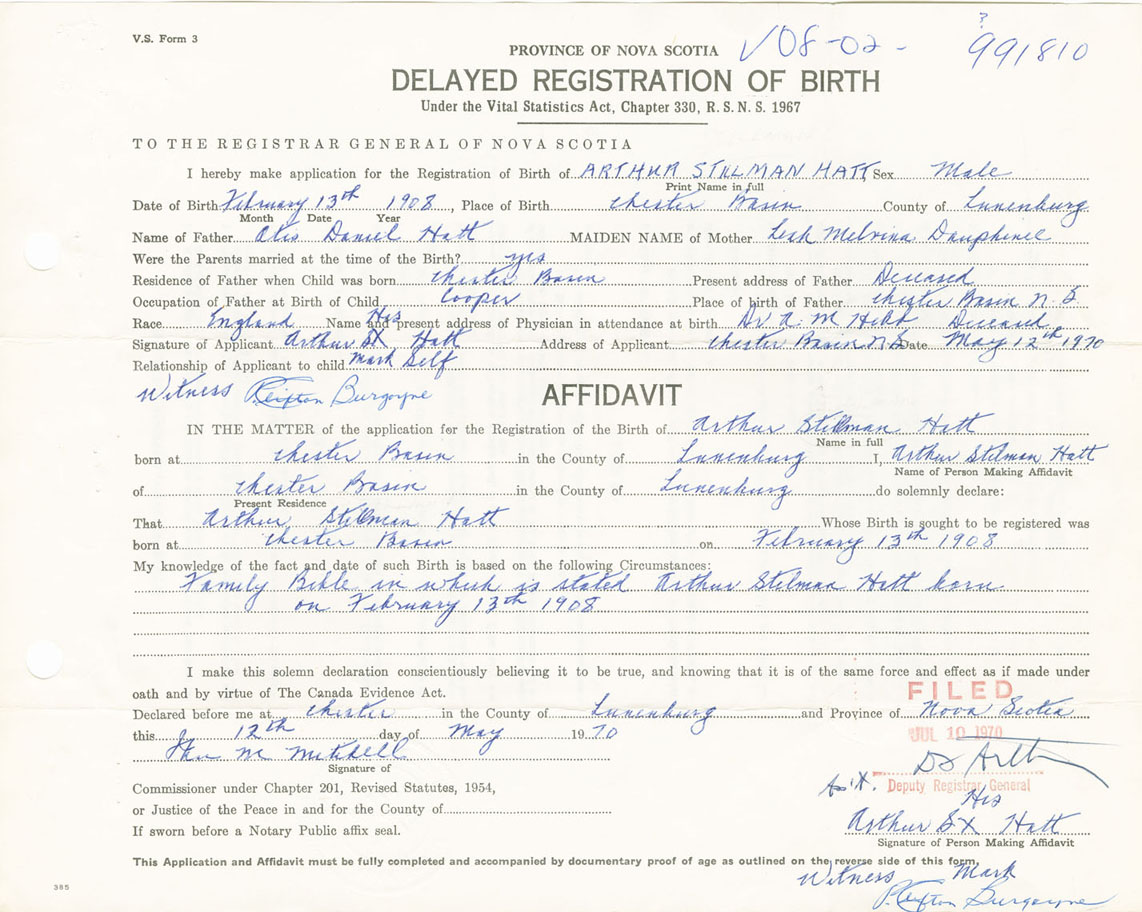 V.S. Form 3
PROVINCE OF NOVA SCOTIA
V08-02-
?
991810
DELAYED REGISTRATION OF BIRTH
Under the Vital Statistics Act, Chapter 330, R.S.N.S. 1967
TO THE REGISTRAR GENERAL OF NOVA SCOTIA
I hereby make application for the Registration of Birth of ARTHUR STILMAN HATT Sex Male
Print Name in full
Date of Birth February 13th 1908, Place of Birth Chester Basin County of Lunenburg
Month Date Year
Name of Father Otis Daniel Hatt MAIDEN NAME of Mother Leah Melvina Dauphinee
Were the Parents married at the time of the Birth? yes
Residence of Father when Child was born Chester Basin Present address of Father Deceased
Occupation of Father at Birth of Child Cooper Place of birth of Father Chester Basin N.S
Race England Name and present address of Physician in attendance at birth Dr A. M Hebb Deceased
His
Signature of Applicant Arthur S X Hatt Address of Applicant Chester Basin N S Date May 12th 1970
Relationship of Applicant to child Mark Self
Witness Burgoyne
AFFIDAVIT
IN THE MATTER of the application for the Registration of the Birth of Arthur Stillman Hatt
Name in full
born at Chester Basin in the County of Lunenburg I, Arthur Stilman Hatt
Name of Person Making Affidavit
of Chester Basin in the County of Lunenburg do solemnly declare:
Present Residence
That Arthur Stillman Hatt Whose Birth is sought to be registered was
born at Chester Basin on February 13th 1908
My knowledge of the fact and date of such Birth is based on the following Circumstances:
Family Bible in which is stated Arthur Stilman Hatt born
on February 13th 1908
I make this solemn declaration conscientiously believing it to be true, and knowing that it is of the same force and effect as if made under
oath and by virtue of The Canada Evidence Act.
FILED
Declared before me at Chester in the County of Lunenburg and Province of Nova Scotia
this 12th day of May 1970
JUL 10 1970
M Mitchell
Signature of
Deputy Registrar General
Commissioner under Chapter 201, Revised Statutes, 1954,
or Justice of the Peace in and for the County of
His
Arthur S X Hatt
Signature of Person Making Affidavit
If sworn before a Notary Public affix seal.
This Application and Affidavit must be fully completed and accompanied by documentary proof of age as outlined on the reverse side of this form.
Witness Mark
Burgoyne
385